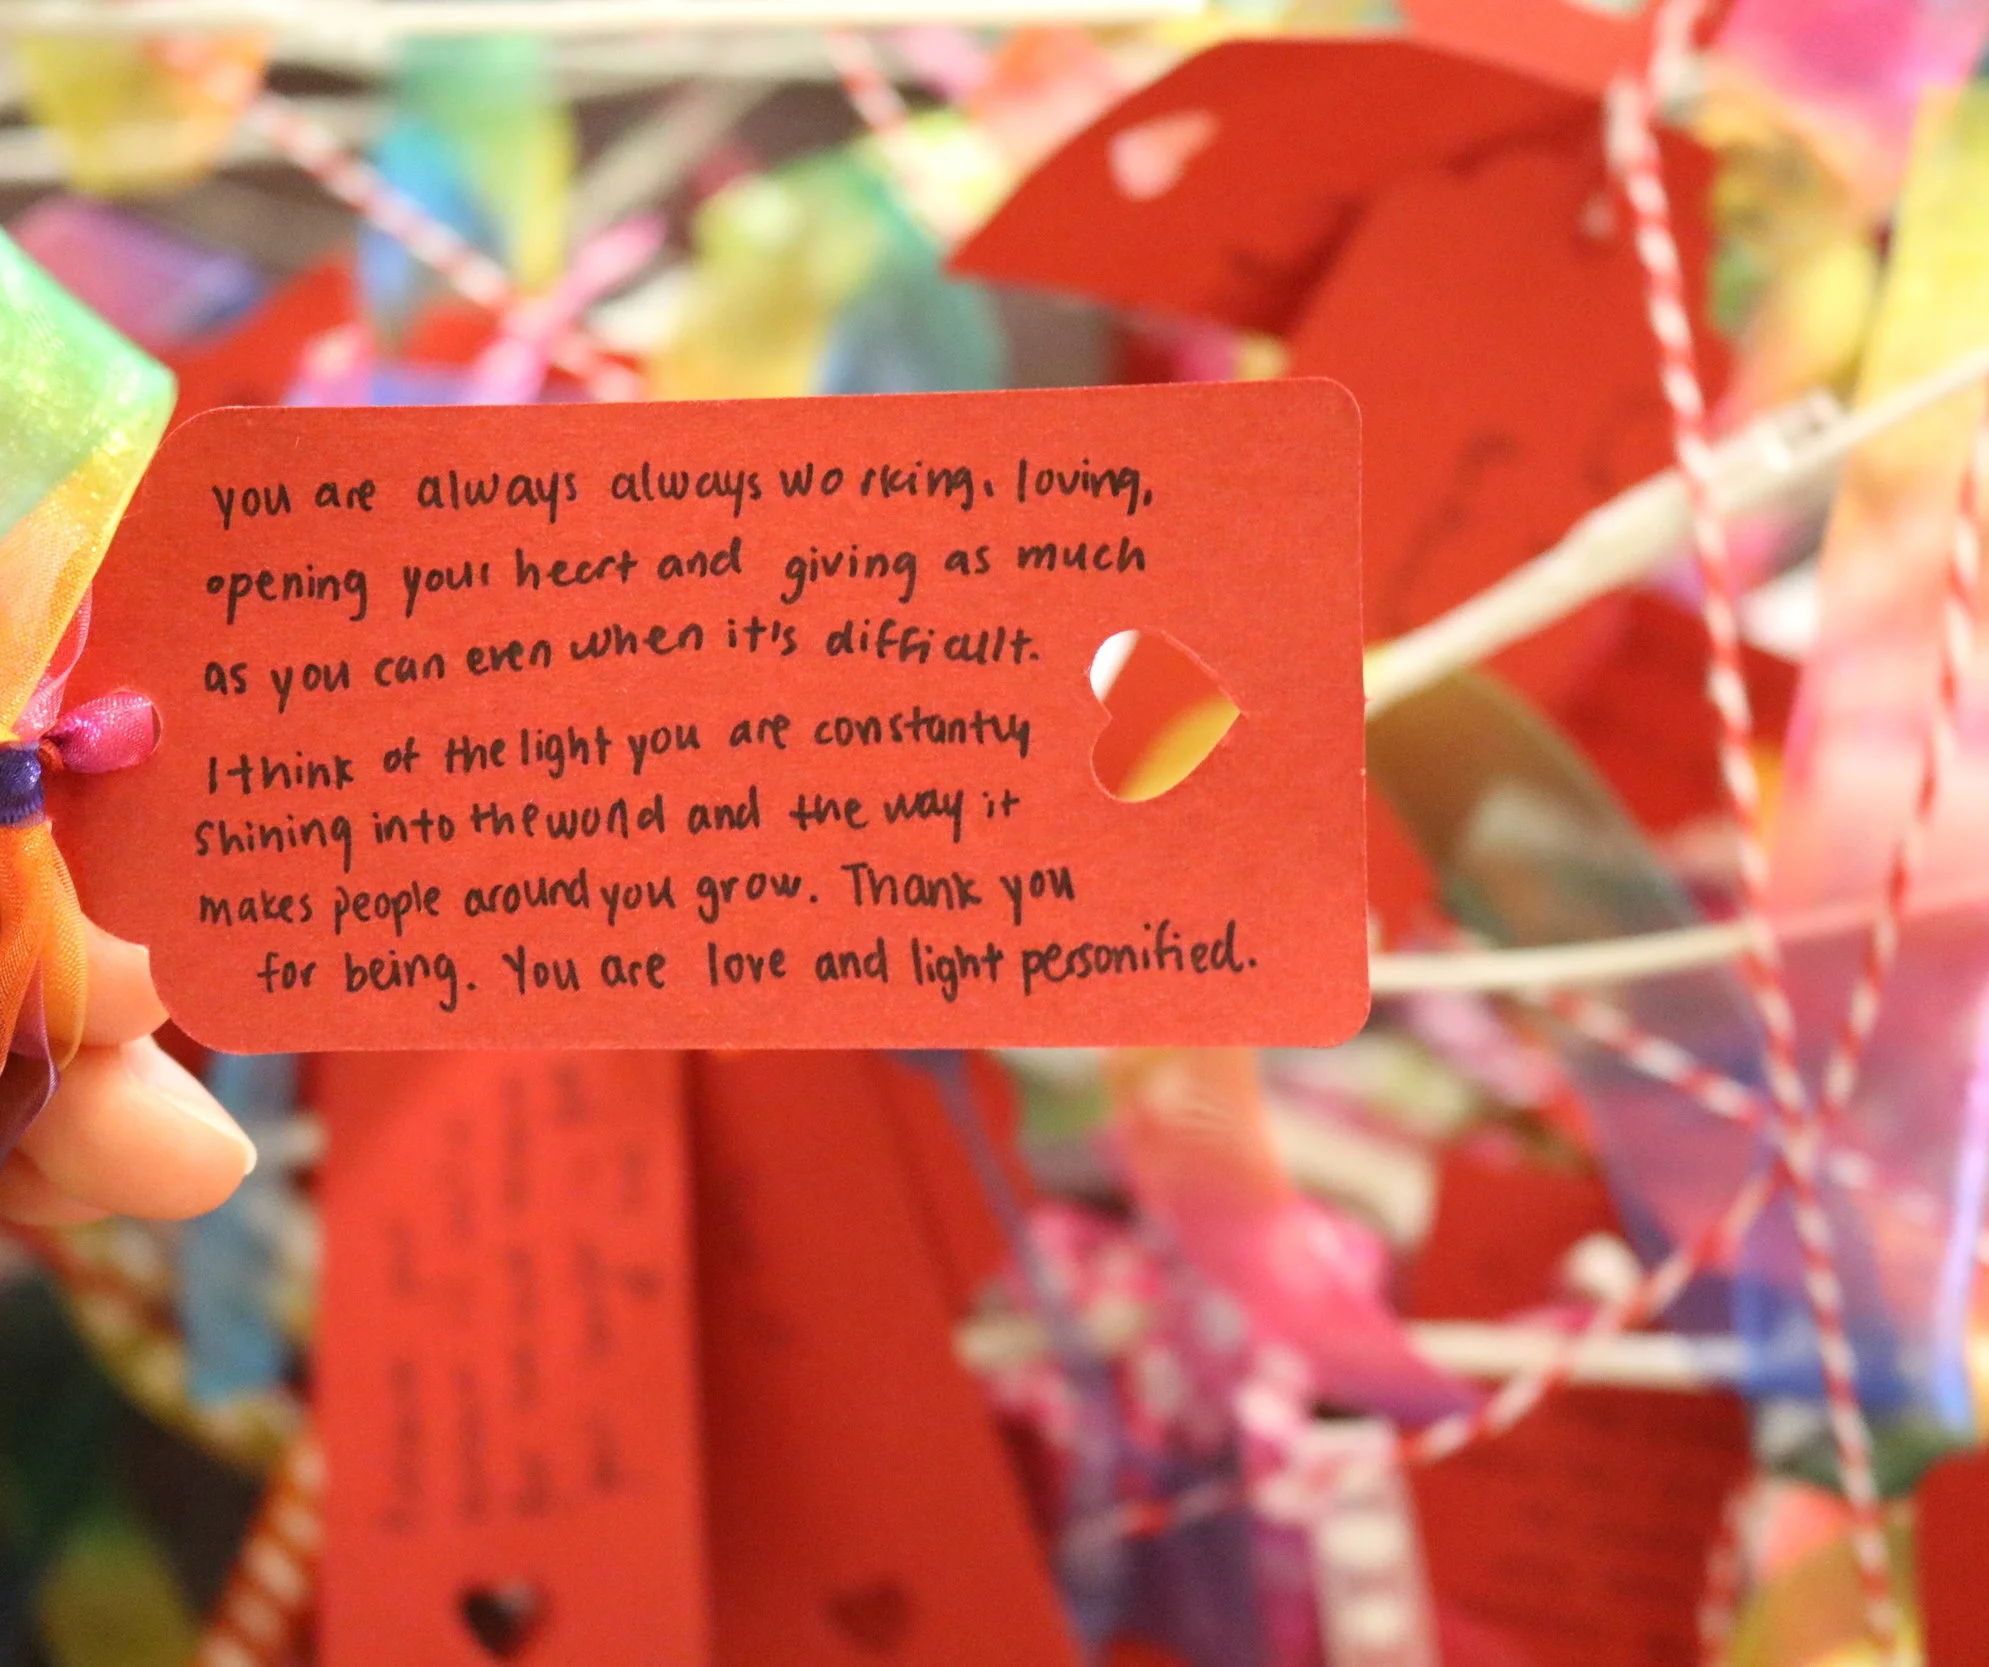 you are always always working, loving,
opening your heart and giving as much
as you can even when it's difficult.
I think of the light you are constantly
shining into the world and the way it
makes people around you grow. Thank you
for being. You are love and light personified.